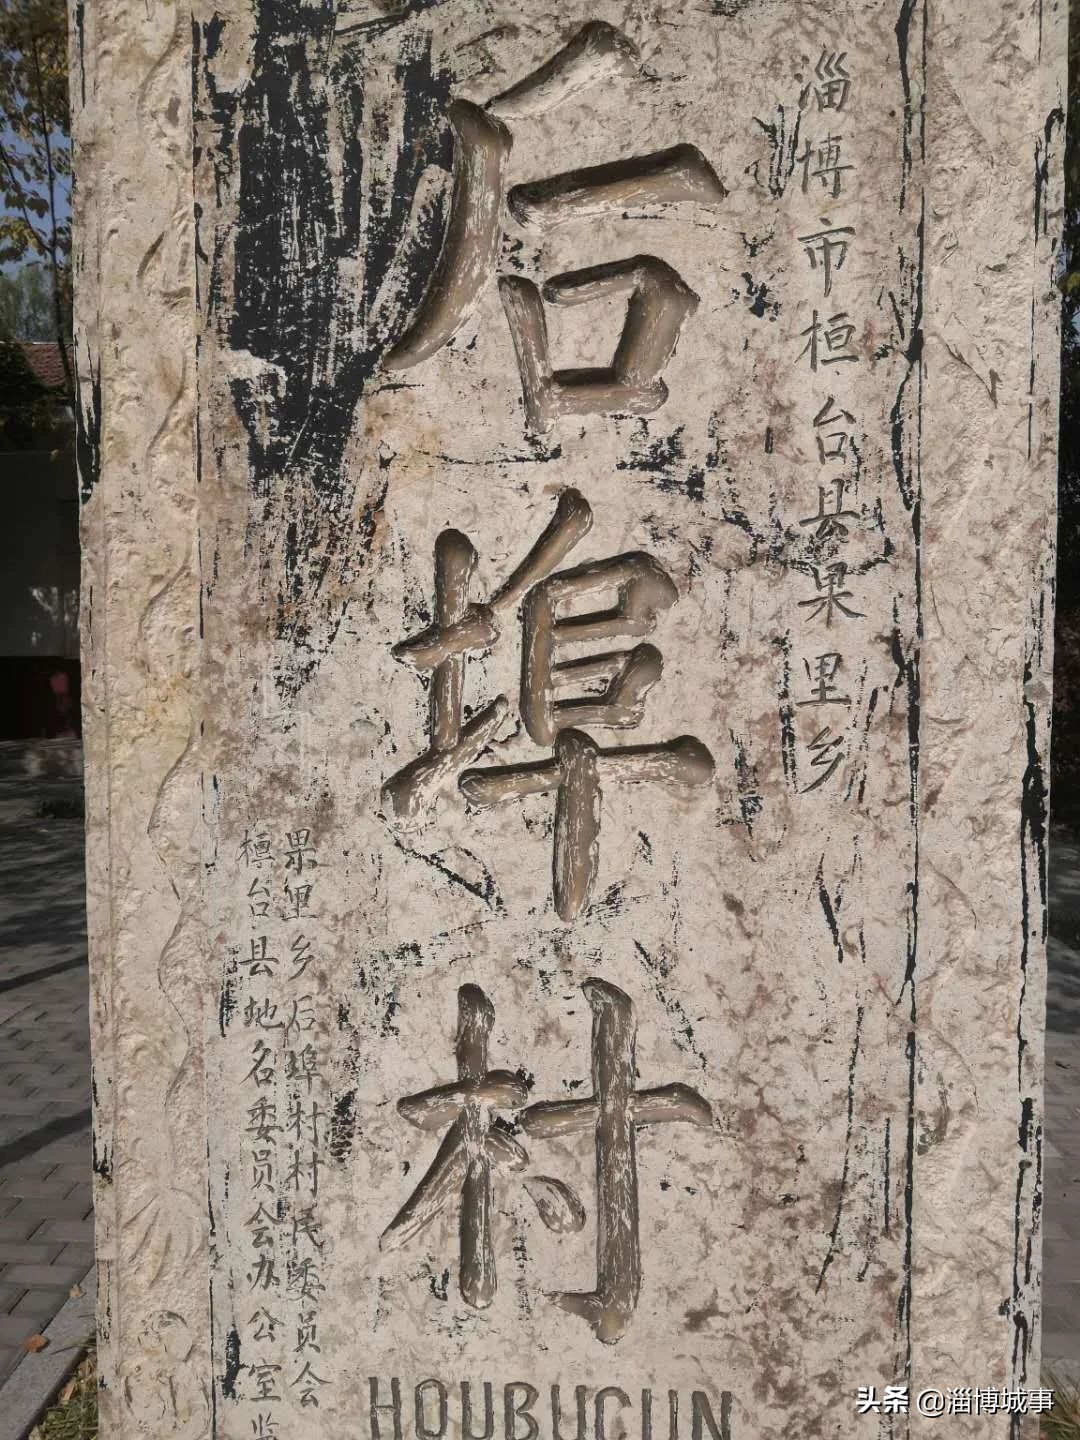 淄博市桓台县果里乡
后埠村
果里乡后埠村村民委员会
桓台县地名委员会办公室监
HOUBUCUN
头条 @淄博城事